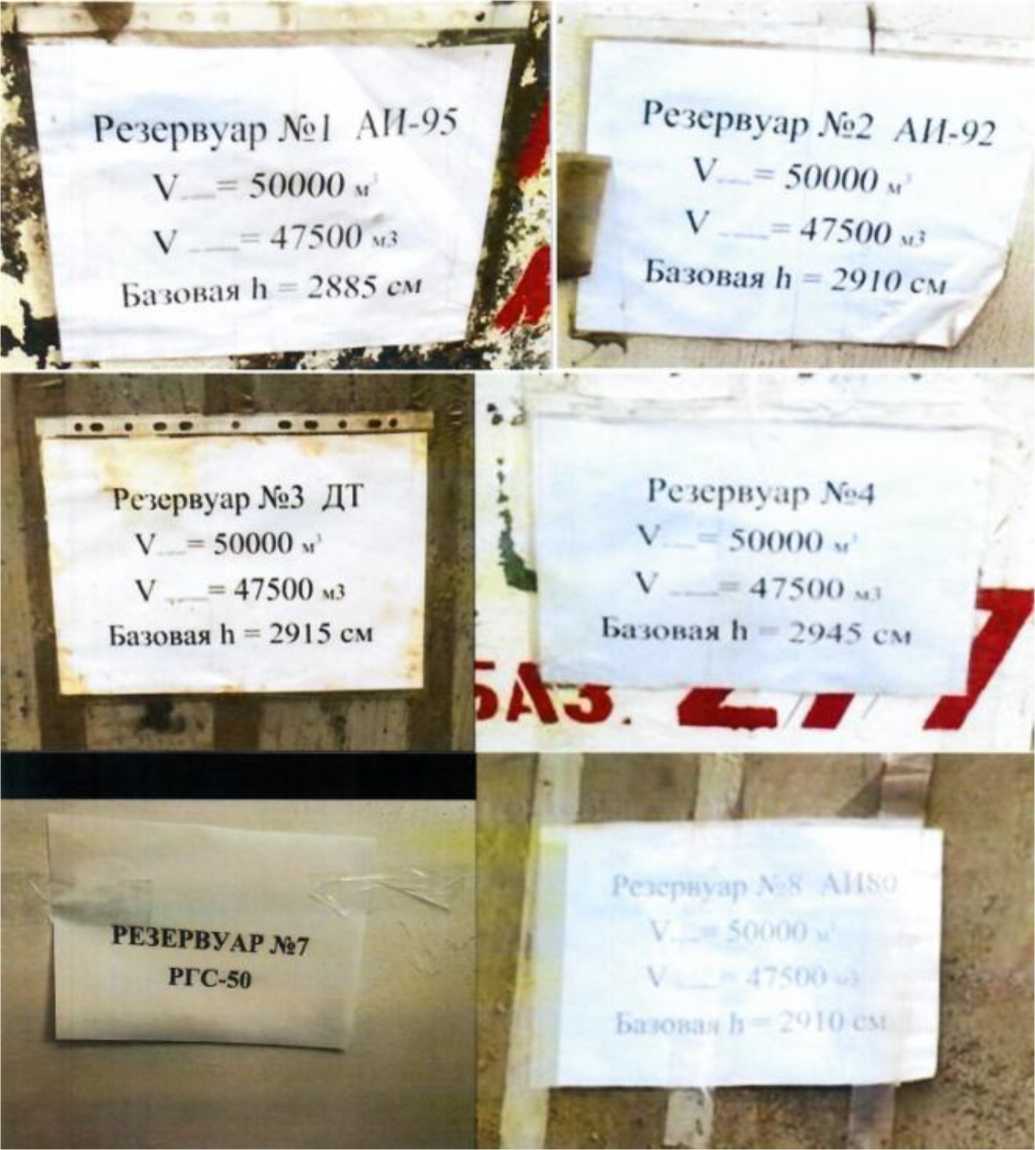 Резервуар №1 АИ-95
V = 50000 м³
V = 47500 м3
Базовая h = 2885 см
Резервуар №2 АИ-92
V = 50000 м³
V = 47500 м3
Базовая h = 2910 см
Резервуар №3 ДТ
V = 50000 м³
V = 47500 м3
Базовая h = 2915 см
Резервуар №4
V = 50000 м³
V = 47500 м3
Базовая h = 2945 см
БАЗ.
РЕЗЕРВУАР №7
РГС-50
Резервуар №8 АИ80
V = 50000 м³
V = 47500 м3
Базовая h = 2910 см